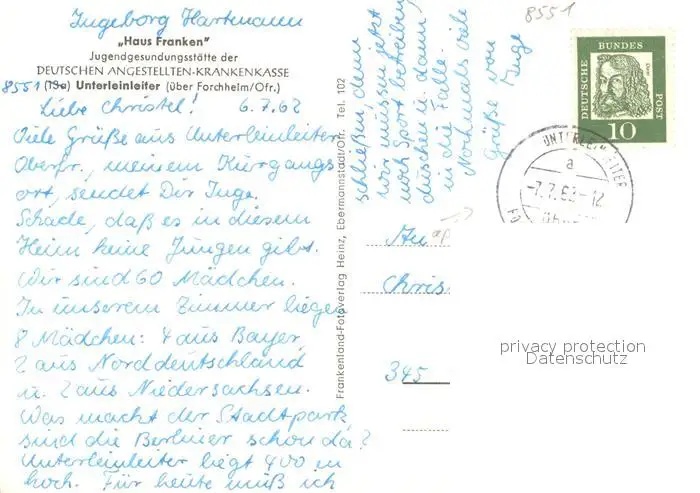 Ingeborg Hartmann
„Haus Franken"
Jugendgesundungsstätte der
DEUTSCHEN ANGESTELLTEN-KRANKENKASSE
8551 (13a) Unterleinleiter (über Forchheim/Ofr.)
Liebe Christel! 6.7.62
Viele Grüße aus Unterleinleiter
Oberfr., meinem Kurgangs
ort, sendet Dir Inge.
Schade, daß es in diesem
Heim keine Jungen gibt.
Wir sind 60 Mädchen.
In unserem Zimmer liegen
8 Mädchen: 4 aus Bayer,
2 aus Norddeutschland
u. 2 aus Niedersachsen.
Was macht der Stadtpark
sind die Berliner schon da?
Unterleinleiter liegt 400 m
hoch. Für heute muß ich
schließen, denn
wir müssen jetzt
noch Sport betreiben,
duschen u. dann
in die Falle.
Nochmals viele
Grüße von
Inge
Frankenland-Fotoverlag Heinz, Ebermannstadt/Ofr. Tel. 102
8551
DEUTSCHE BUNDES POST
Dürer
10
UNTERLEINLEITER
a
-7.7.62-12
An
Chris
345
privacy protection
Datenschutz